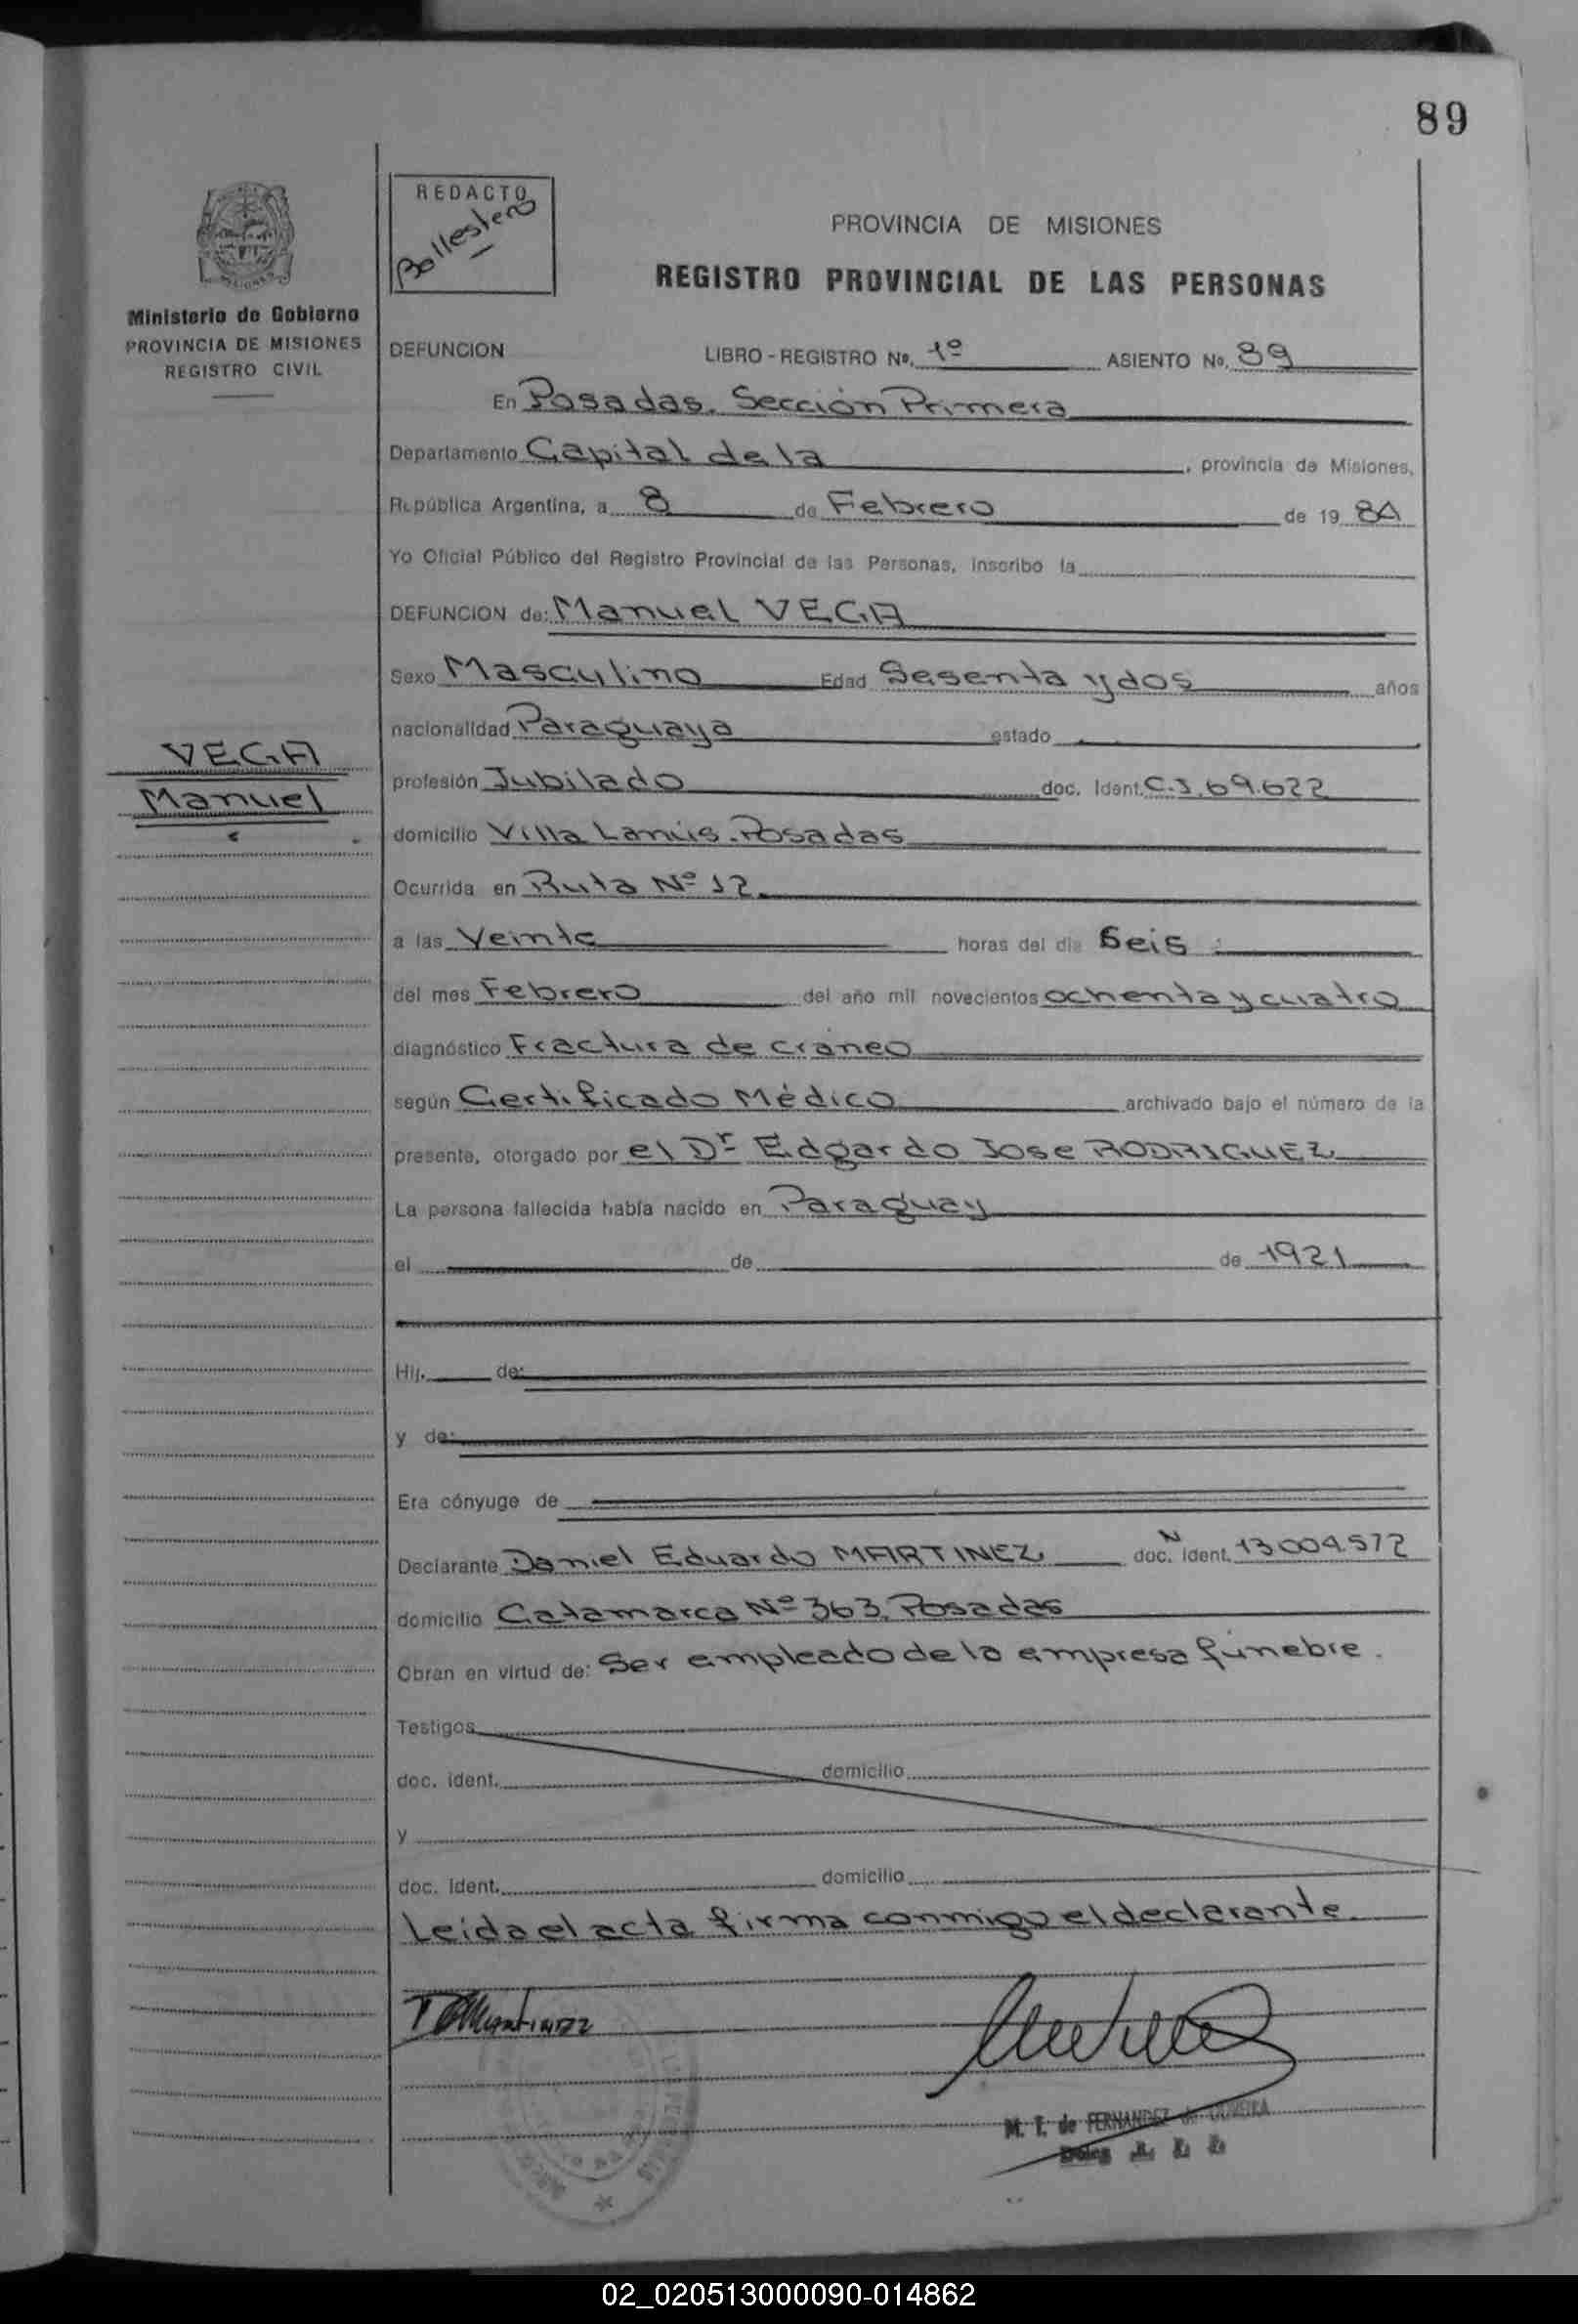 89
REDACTO
Ballestero
PROVINCIA DE MISIONES
REGISTRO PROVINCIAL DE LAS PERSONAS
Ministerio de Gobierno
PROVINCIA DE MISIONES
REGISTRO CIVIL
DEFUNCION LIBRO - REGISTRO No. 1º ASIENTO No. 89
En Posadas. Sección Primera
Departamento Capital de la, provincia de Misiones,
República Argentina, a 8 de Febrero de 19 84
Yo Oficial Público del Registro Provincial de las Personas, inscribo la
DEFUNCION de: Manuel VEGA
Sexo Masculino Edad Sesenta y dos años
nacionalidad Paraguaya estado
VEGA
Manuel
profesión Jubilado doc. Ident. C.I. 69.622
domicilio Villa Lanús. Posadas
Ocurrida en Ruta Nº 12
a las Veinte horas del día Seis
del mes Febrero del año mil novecientos ochenta y cuatro
diagnóstico Fractura de cráneo
según Certificado Médico archivado bajo el número de la
presente, otorgado por el Dr Edgardo Jose RODRIGUEZ
La persona fallecida había nacido en Paraguay
el de de 1921
Hij. de:
y de:
Era cónyuge de
Declarante Daniel Eduardo MARTINEZ doc. N Ident. 13.004.572
domicilio Catamarca Nº 363. Posadas
Obran en virtud de: Ser empleado de la empresa fúnebre.
Testigos
doc. ident. domicilio
y
doc. ident. domicilio
Leida el acta firma conmigo el declarante.
M. T. de FERNANDEZ de OLIVEIRA
02_020513000090-014862